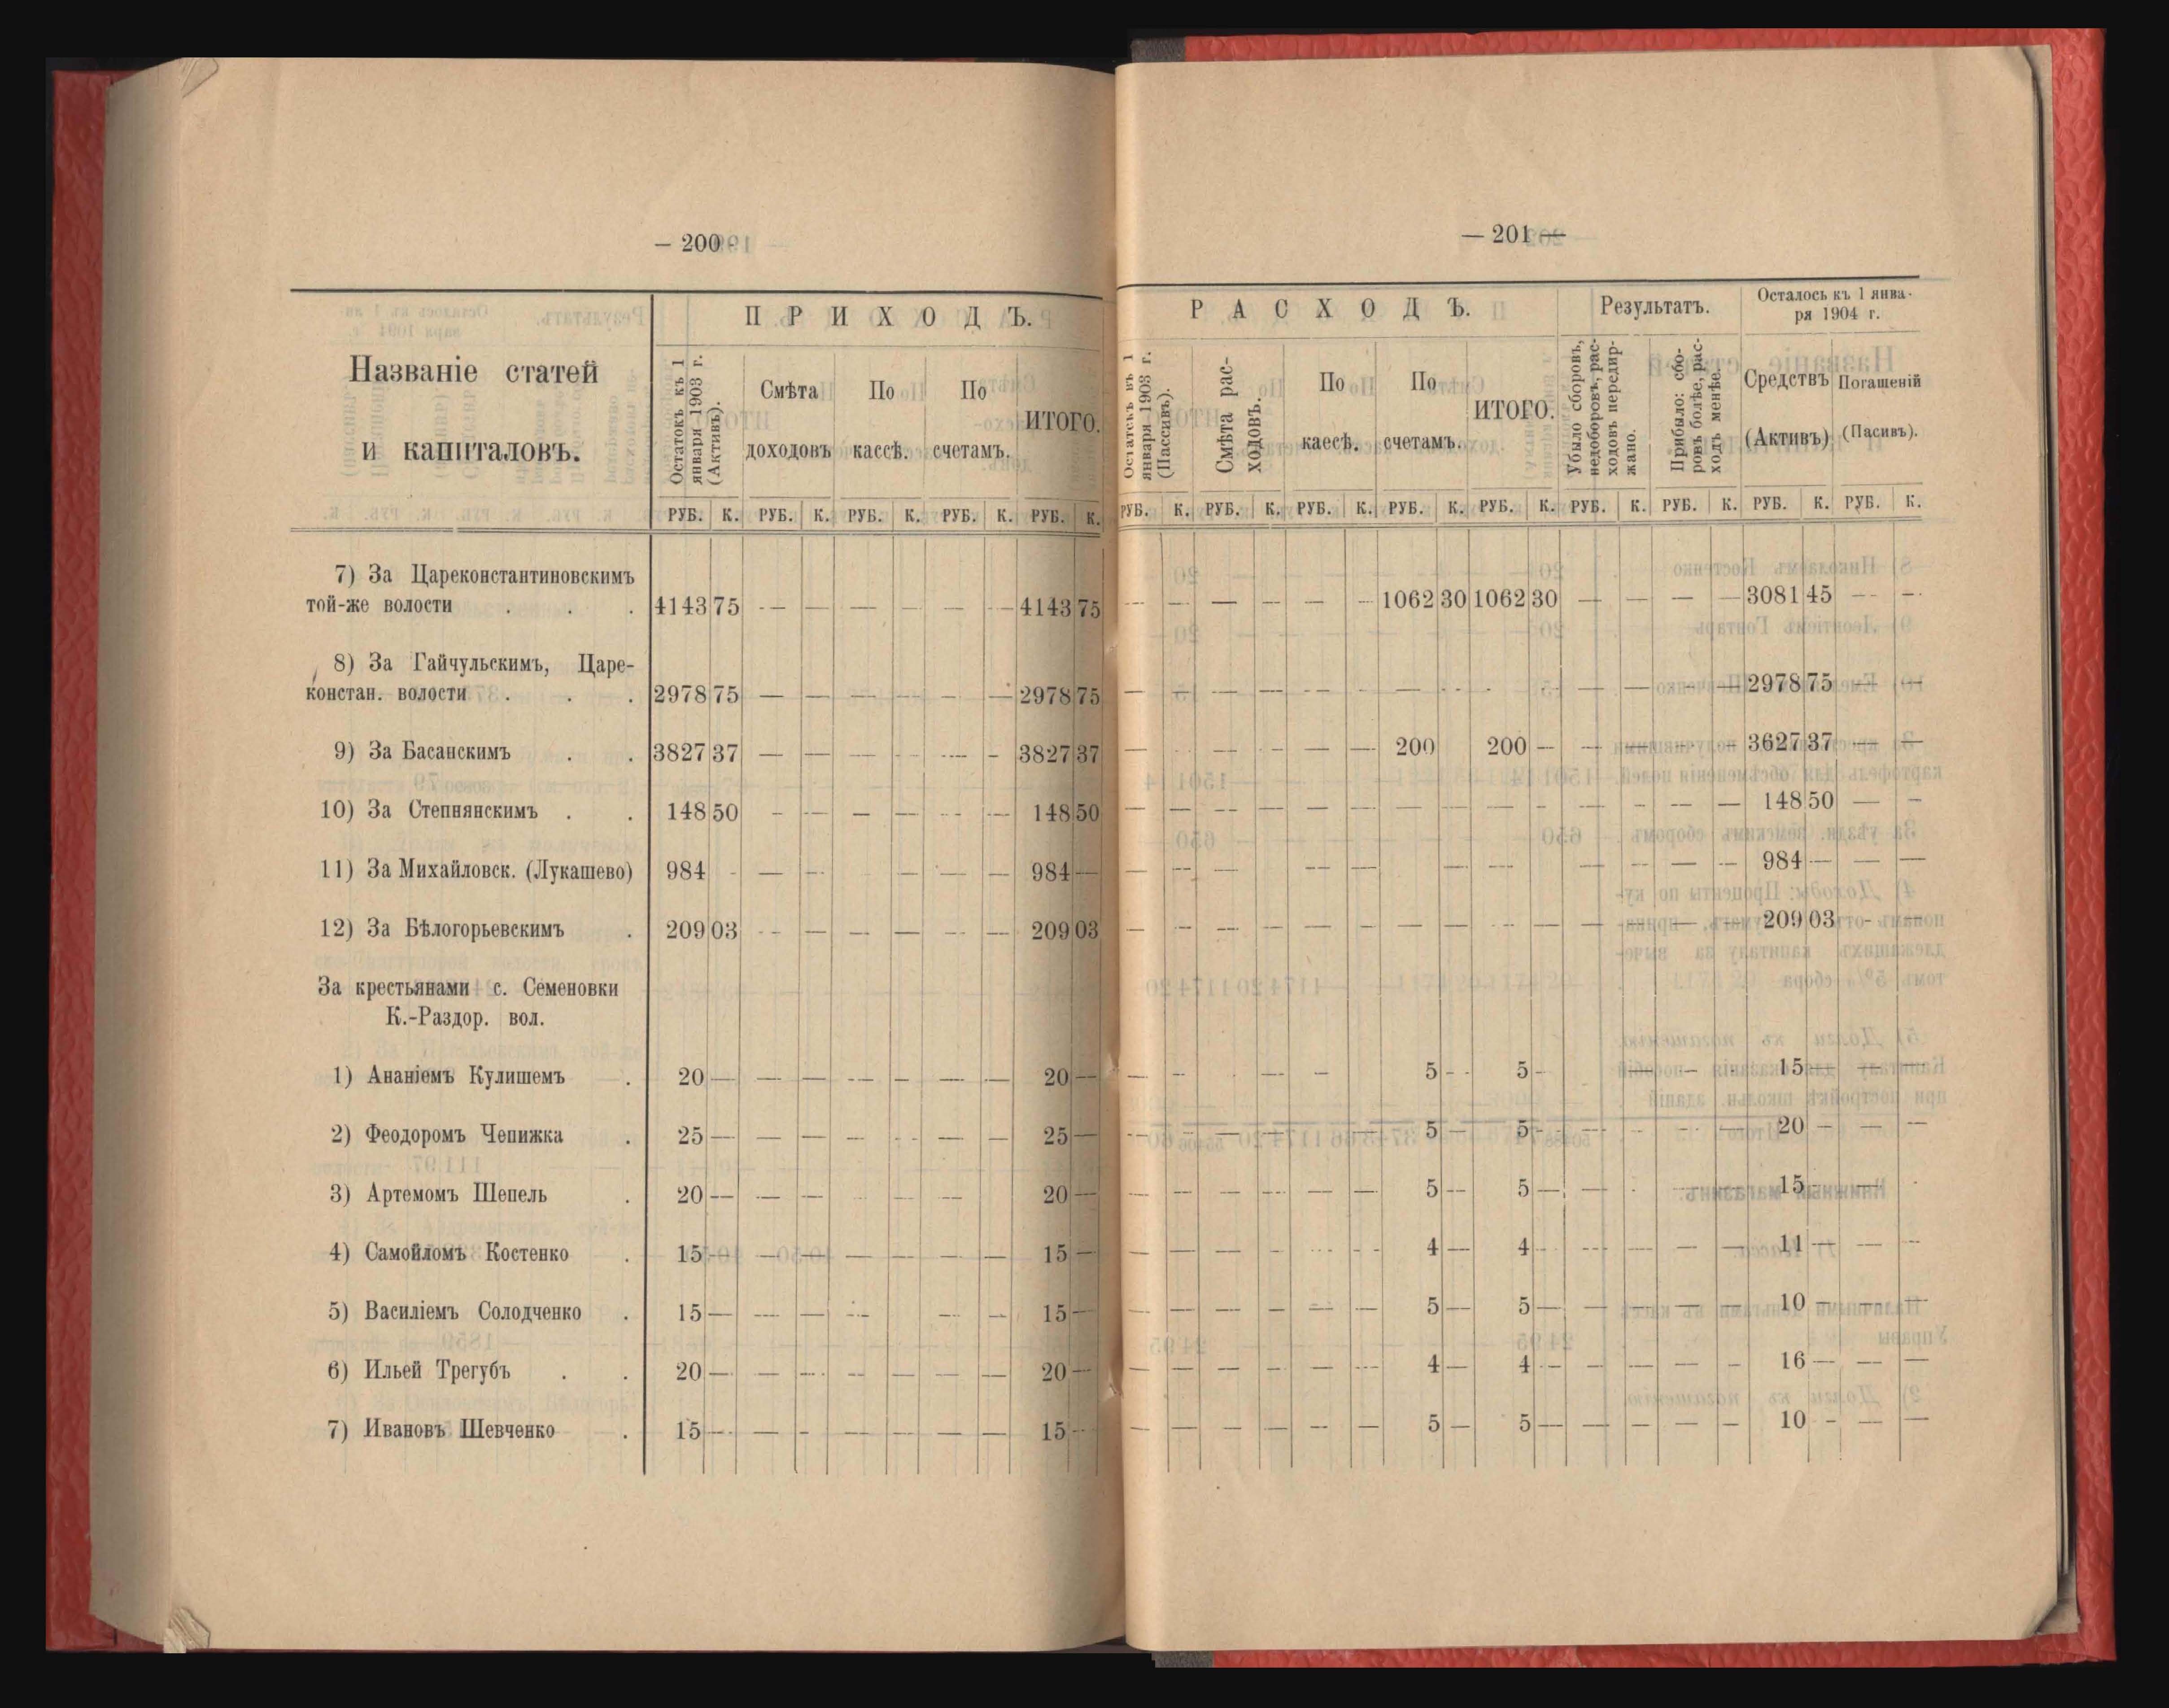 — 200 -
Названіе статей
и капиталовъ.
ПРИХОДЪ.
Остатокъ къ 1 января 1903 г. (Активъ).
Смѣта доходовъ
По кассѣ.
По счетамъ.
ИТОГО.
РУБ. К. РУБ. К. РУБ. К. РУБ. К. РУБ. К.
7) За Цареконстантиновскимъ
той-же волости . . . 4143 75 — — — — — — 4143 75
8) За Гайчульскимъ, Царе-
констан. волости . . . 2978 75 — — — — — — 2978 75
9) За Басанскимъ . . 3827 37 — — — — — — 3827 37
10) За Степнянскимъ . . 148 50 — — — — — — 148 50
11) За Михайловск. (Лукашево) 984 - — — — — — 984 —
12) За Бѣлогорьевскимъ . 209 03 — — — — — — 209 03
За крестьянами с. Семеновки
К.-Раздор. вол.
1) Ананіемъ Кулишемъ . 20 — — — — — — — 20 —
2) Феодоромъ Чепижка . 25 — — — — — — — 25 —
3) Артемомъ Шепель . 20 — — — — — 20 —
4) Самойломъ Костенко . 15 — — — — — — — 15 —
5) Василіемъ Солодченко . 15 — — — — — — 15 —
6) Ильей Трегубъ . . 20 — — — — — — — 20 —
7) Ивановъ Шевченко . 15 — — — — — — — 15 —
— 201 —
РАСХОДЪ.
Результатъ.
Осталось къ 1 янва-
ря 1904 г.
Остатокъ къ 1 января 1903 г. (Пассивъ).
Смѣта рас-
ходовъ.
По каесѣ.
По счетамъ.
ИТОГО.
Убыло сборовъ,
недоборовъ, рас-
ходовъ передир-
жано.
Прибыло: сбо-
ровъ болѣе, рас-
ходъ менѣе.
Средствъ
(Активъ)
Погашеній
(Пасивъ).
РУБ. К. РУБ. К. РУБ. К. РУБ. К. РУБ. К. РУБ. К. РУБ. К. РУБ. К. РУБ. К.
— — — — — — 1062 30 1062 30 — — — — 3081 45 — —
— — — — — — — — — — — — 2978 75 — —
— — — — — — 200 200 — — — — — 3627 37 — —
— — — — — — — — — — — — — — 148 50 — —
— — — — — — — — — — — 984 — — —
— — — — — — — — — — — — — — 209 03 - —
— — — — 5 — 5 — — — — 15 — — —
— — — — — — 5 — 5 — — — — — 20 — — —
— — — — — — 5 — 5 — — — — 15 — —
— — — — — — 4 — 4 — — — — — 11 — — —
— — — — — — 5 — 5 — — — — — 10 — — —
— — — — — — 4 — 4 — — — — — 16 — — —
— — — — — — 5 — 5 — — — — — 10 — — —